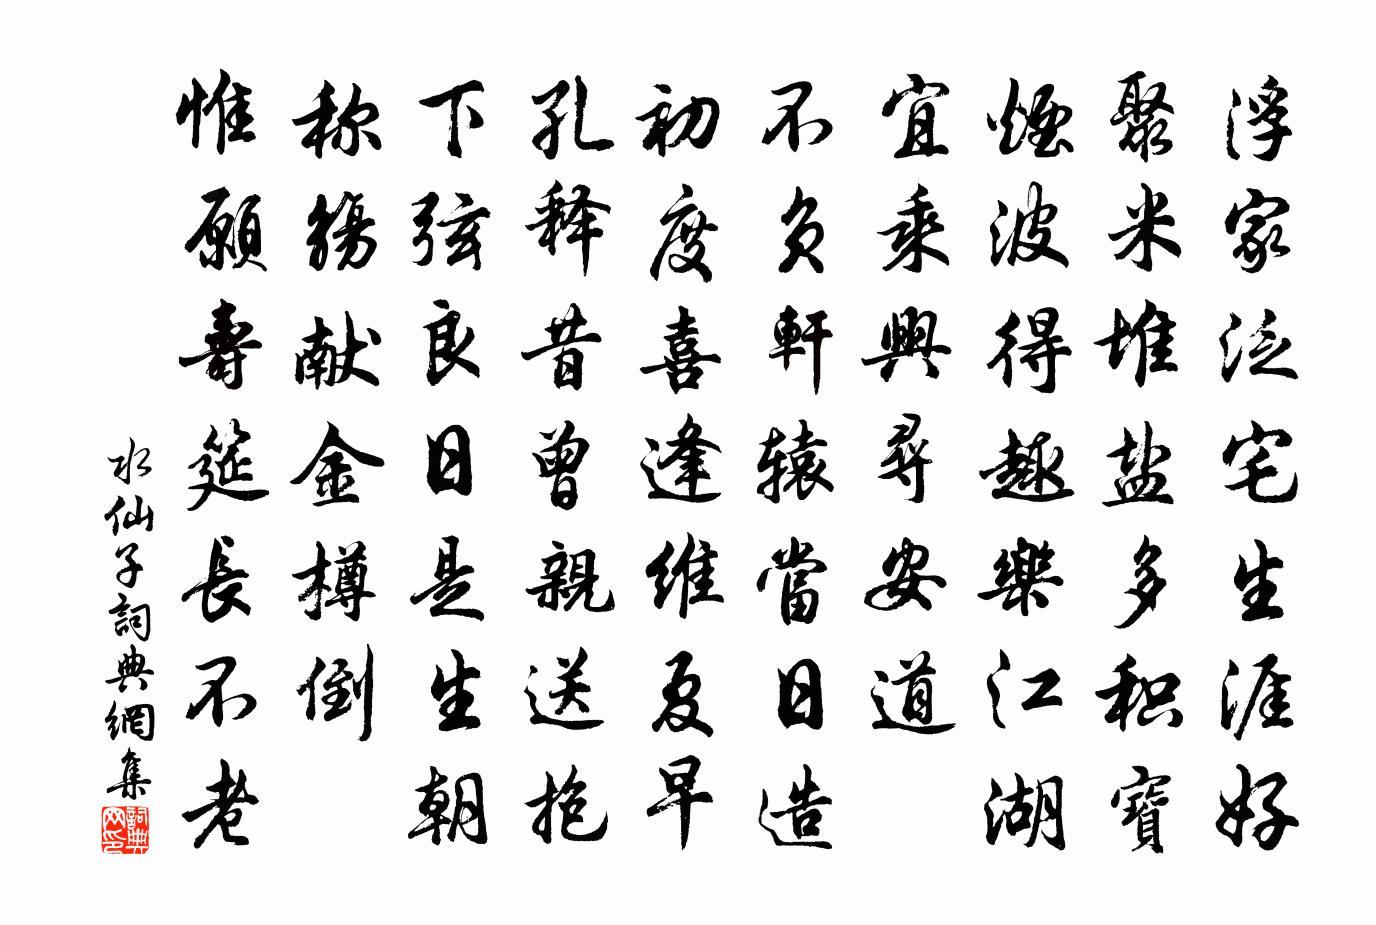 浮家泛宅生涯好
聚米堆盐多积寶
煙波得趣樂江湖
宜乘興尋安道
不负軒辕當日造
初度喜逢维夏早
孔释昔曾親送抱
下弦良日是生朝
称觴献金樽倒
惟願壽筵長不老
水仙子詞典網集
詞典网印